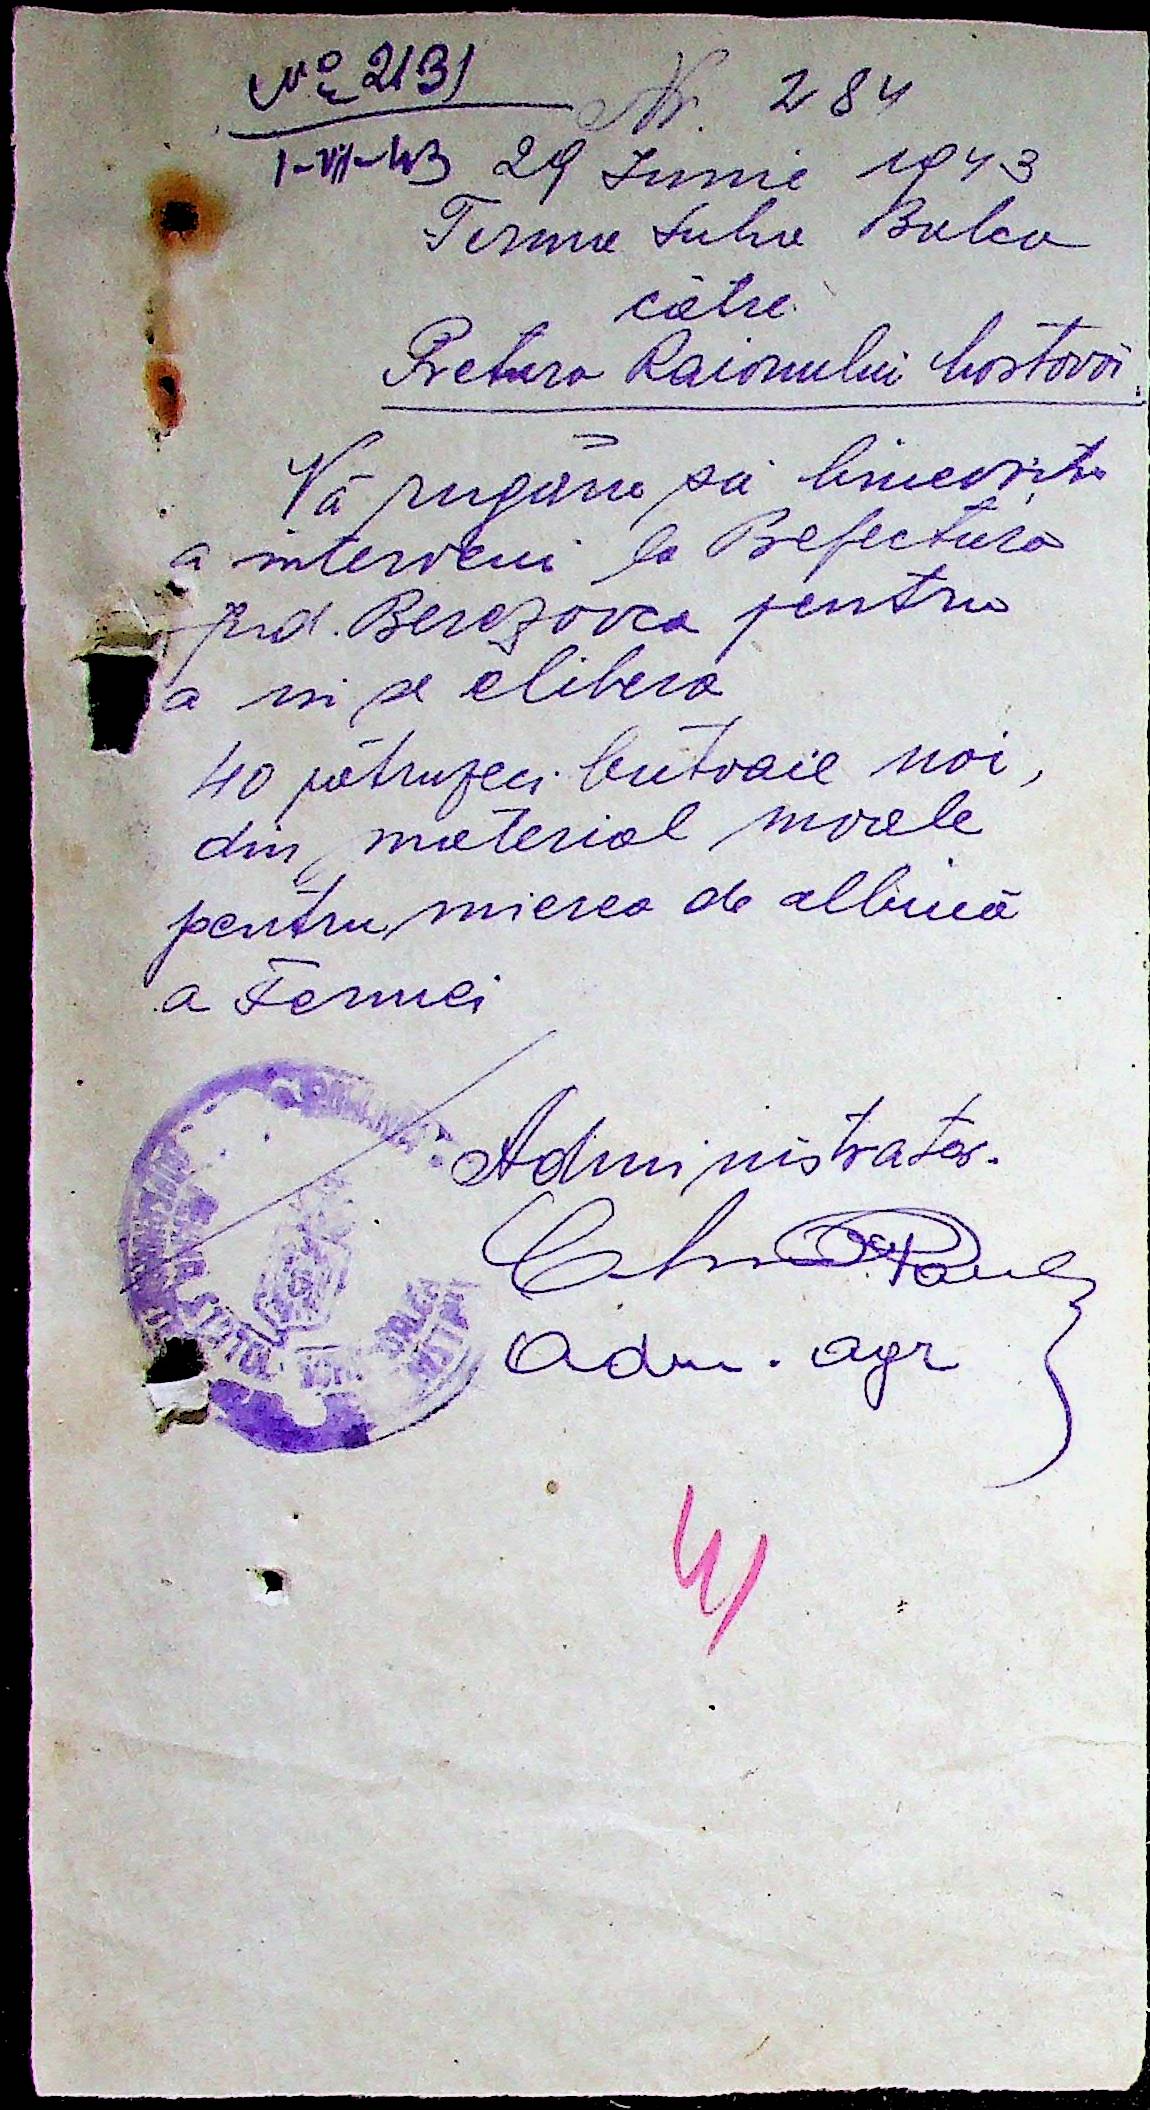 No 2131
Nr. 284
1-VII-43
29 Iunie 1943
Ferma Suha Balca
către
Pretura Raionului Mostovoi
Vă rugăm să binevoiți
a interveni la Prefectura
jud. Berezovca pentru
a ni se elibera
40 pătruzeci butoaie noi,
din material moale
pentru mierea de albină
a Fermei
Administrator.
Adm. agr